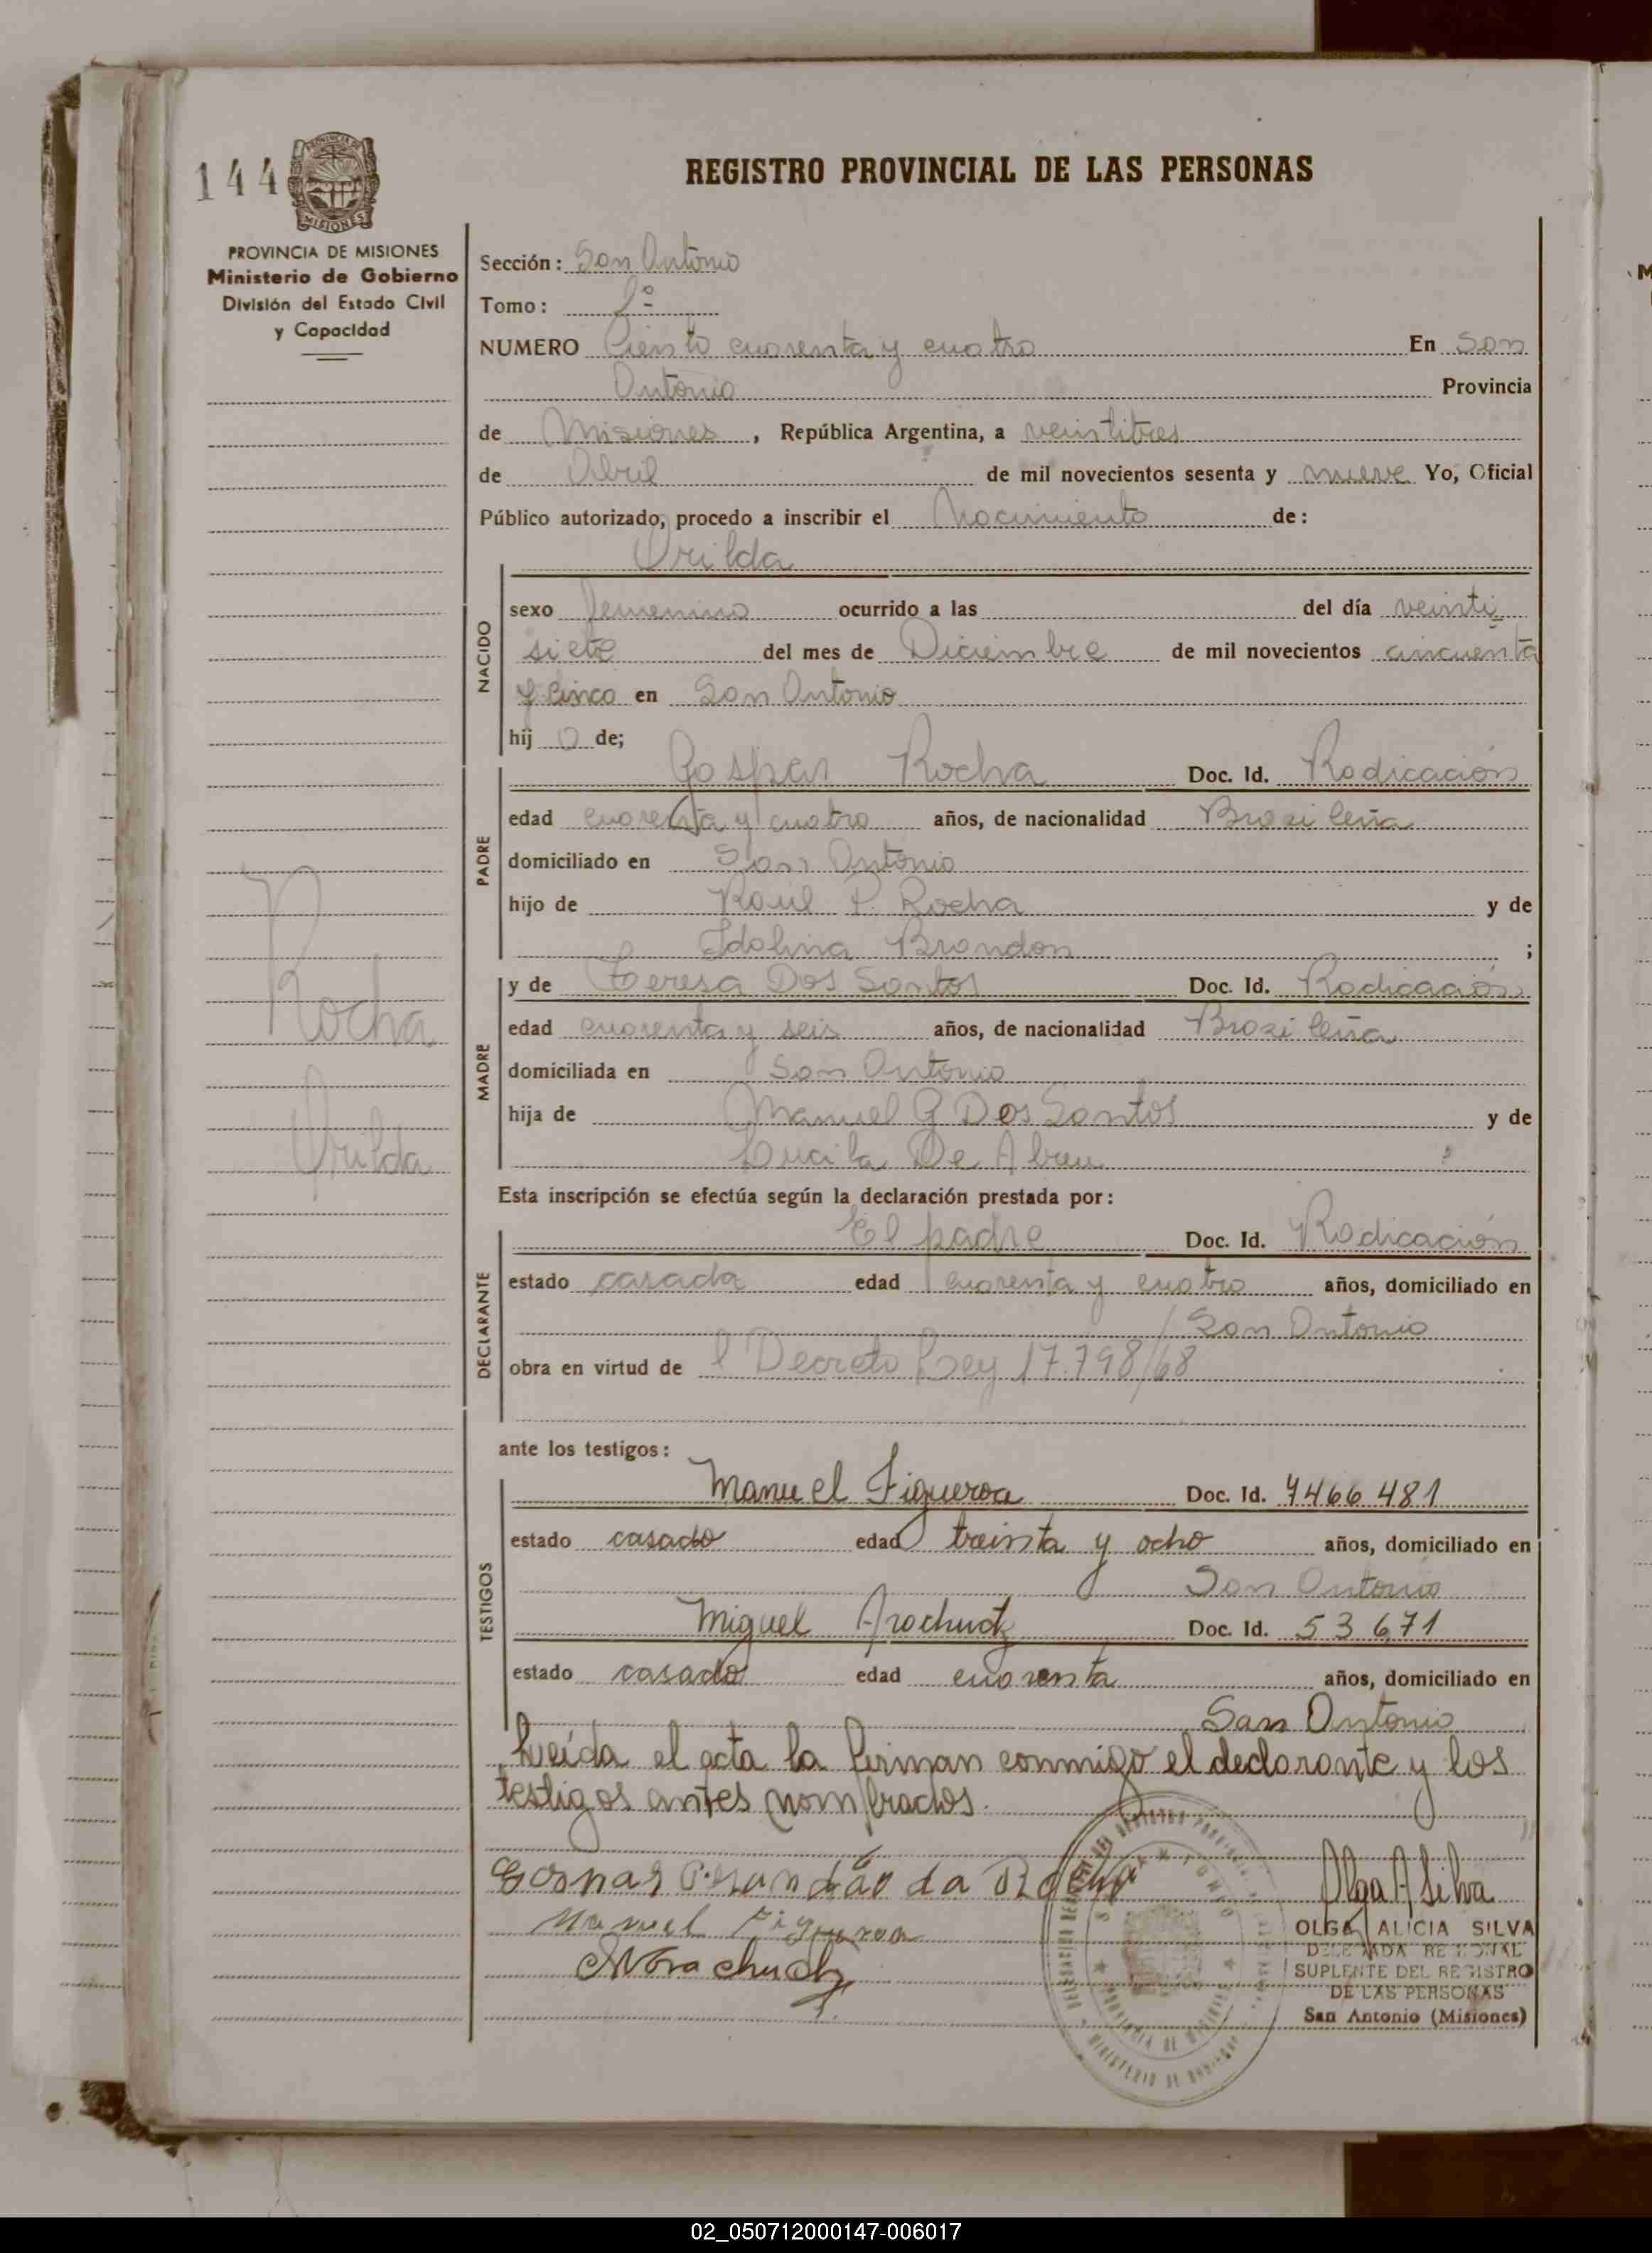 144
PROVINCIA DE MISIONES
Ministerio de Gobierno
División del Estado Civil
y Capacidad
REGISTRO PROVINCIAL DE LAS PERSONAS
Sección: San Antonio
Tomo: 1º
NUMERO Ciento cuarenta y cuatro En San
Antonio Provincia
de Misiones, República Argentina, a veintitres
de Abril de mil novecientos sesenta y nueve Yo, Oficial
Público autorizado, procedo a inscribir el Nacimiento de:
Orilda
NACIDO
sexo femenino ocurrido a las del día veinti
siete del mes de Diciembre de mil novecientos cincuenta
y cinco en San Antonio
hij o de;
PADRE
Gaspar Rocha Doc. Id. Radicación
edad cuarenta y cuatro años, de nacionalidad Brasileña
domiciliado en San Antonio
hijo de Raul P. Rocha y de
Idolina Brandon ;
MADRE
y de Teresa Dos Santos Doc. Id. Radicación
edad cuarenta y seis años, de nacionalidad Brasileña
domiciliada en San Antonio
hija de Manuel G Dos Santos y de
Lucila De Abreu
Rocha
Orilda
Esta inscripción se efectúa según la declaración prestada por:
DECLARANTE
El padre Doc. Id. Radicación
estado casada edad cuarenta y cuatro años, domiciliado en
San Antonio
obra en virtud de l Decreto Ley 17.798/68
ante los testigos:
TESTIGOS
Manuel Figueroa Doc. Id. 7466 481
estado casado edad treinta y ocho años, domiciliado en
San Antonio
Miguel Arachuck Doc. Id. 53 671
estado casado edad cuarenta años, domiciliado en
San Antonio
Leída el acta la firman conmigo el declarante y los
testigos antes nombrados.
da Rocha
Manuel Figueroa
Olga A Silva
OLGA ALICIA SILVA
DELEGADA REGIONAL
SUPLENTE DEL REGISTRO
DE LAS PERSONAS
San Antonio (Misiones)
02_050712000147-006017